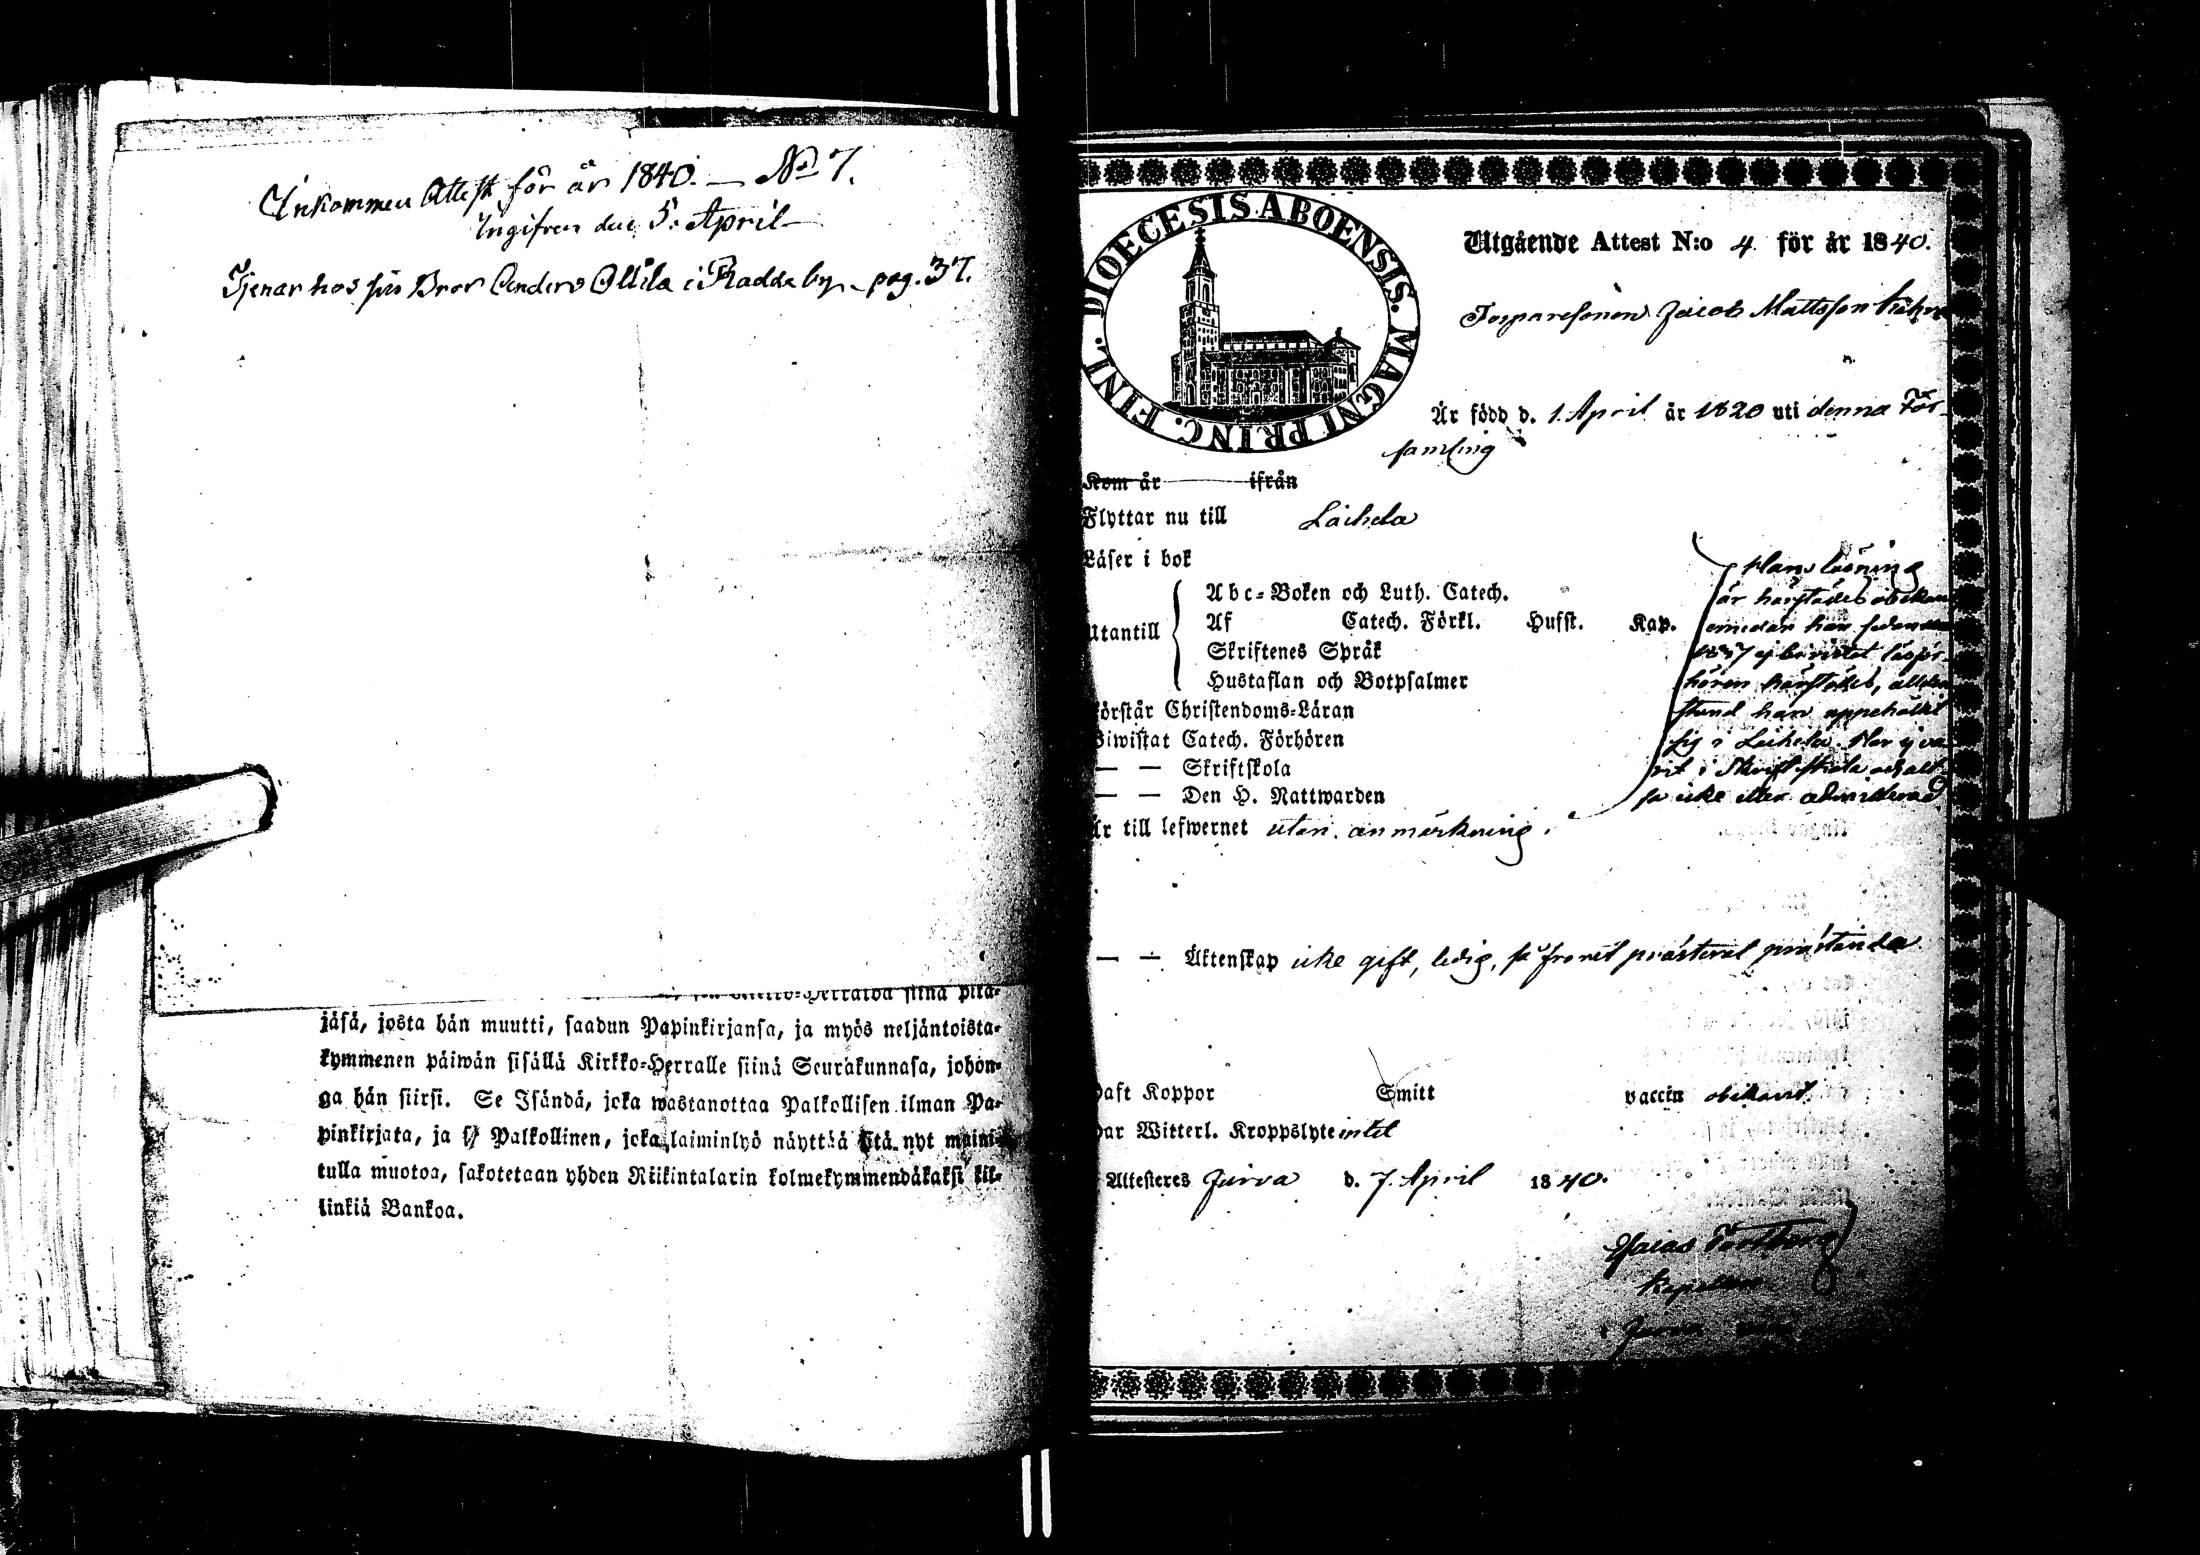 Inkommen Attest för år 1840. — No 7.
Ingifven den 5. April
Tjenar hos sin Bror Anders Ollila i Radda by pag. 37.
jäsä, josta hän muutti, saadun Papinkirjansa, ja myös neljäntoista-
kymmenen päiwän sisällä Kirkko-Herralle siinä Seurakunnasa, johon-
ga hän siirsi. Se Isändä, joka wastanottaa Palkollisen ilman Pa-
pinkirjata, ja se Palkollinen, joka laiminlyö näyttää sitä nyt maini-
tulla muotoa, sakotetaan yhden Riikintalarin kolmekymmendäkaksi kil-
linkiä Bankoa.
DIOECESIS ABOENSIS. MAGNI PRINC. FINL.
Utgående Attest N:o 4 för år 1840.
Torparesonen Jacob Mattsson
Är född d. 1. April år 1820 uti denna För-
samling
Kom år ifrån
Flyttar nu till Laihela
Läser i bok
Utantill
Abc-Boken och Luth. Catech.
Af Catech. Förkl. Husst. Kap.
Skriftenes Språk
Hustaflan och Botpsalmer
Förstår Christendoms-Läran
Biwistat Catech. Förhören
— — Skriftskola
— — Den H. Nattwarden
Hans läsning
är härstädes obekant
emedan han sedan
1837 ej bevistat läsför-
hören härstädes, alldenstund han uppehållit
sig i Laihela. Har ej va
rit i Skriftskola och alt
så icke eller admitterad
Är till lefwernet utan anmärkning.
— — Äktenskap icke gift, ledig, så framt prästerat
Haft Koppor Smitt vaccin obekant.
Har Witterl. Kroppslyte intet
Attesteres Jurva d. 7. April 1840.
Esaias
Kapellan
Jurva